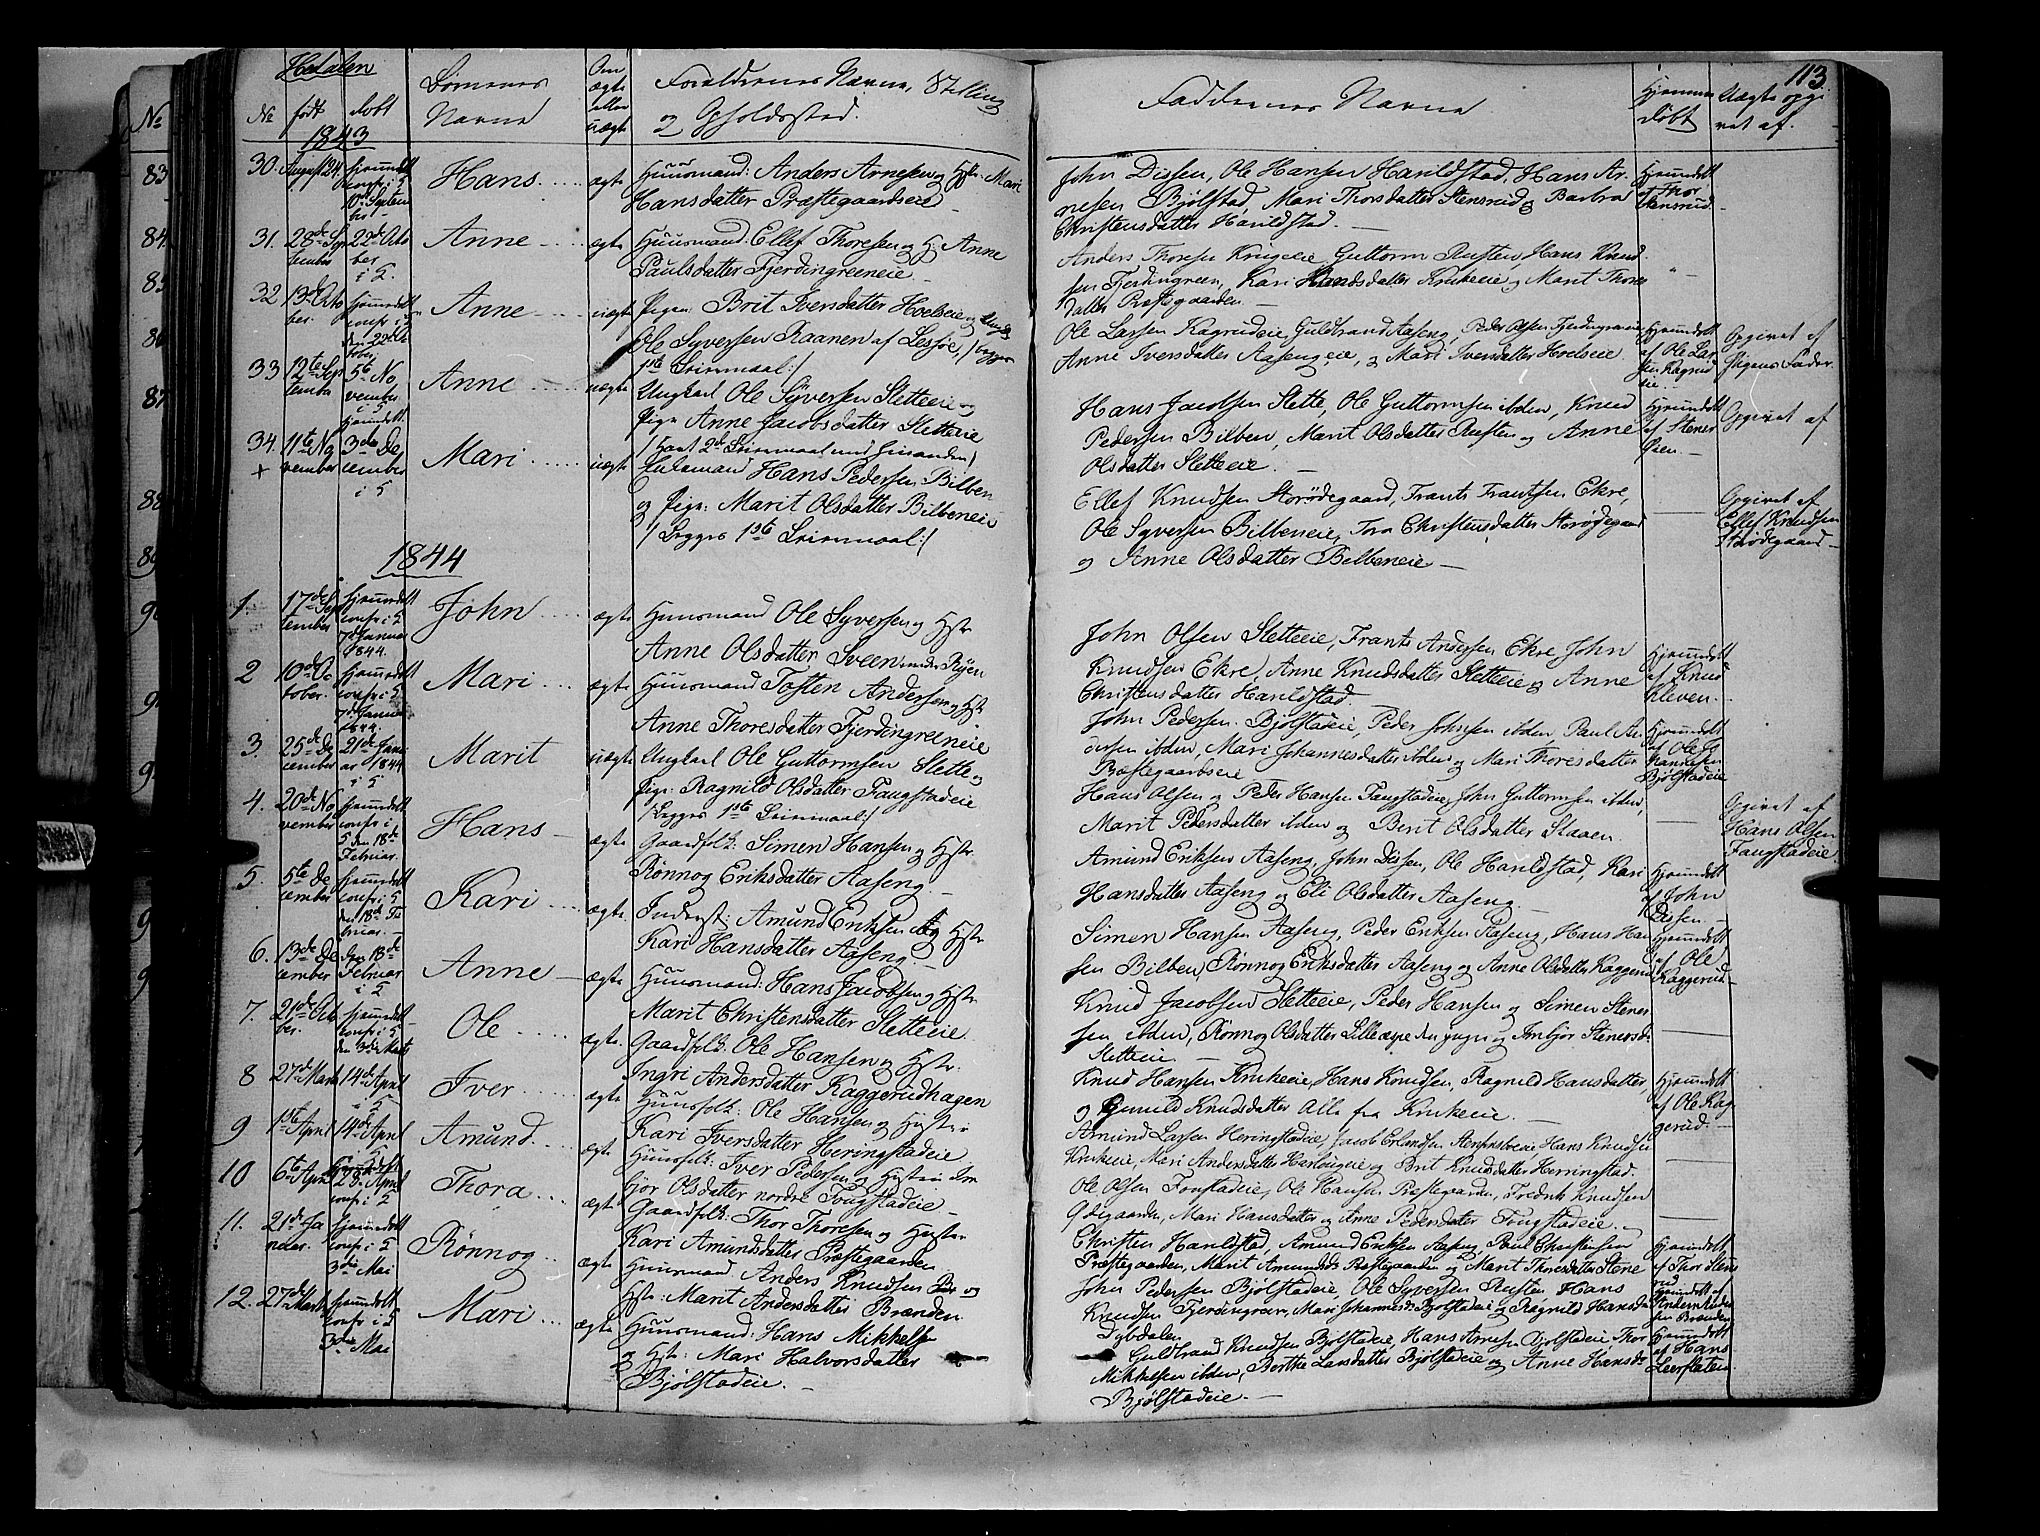 113
Hedalen
No født döbt
Børnenes Navne
Om ægte eller uægte
Forældrenes Navne, Stilling
og Opholdssted.
Faddernes Navne
Hjemmedöbt
Uægte opgivet af.
1843
30. August 24. Hjemmedöbt confr: i K 10 September Hans .... ægte Huusmand: Anders Arnesen og Hstr: Mari
Hansdatter Præstegaardseie
John Dissen, Ole Hansen Harildstad, Hans Ar-
nesen Bjølstad, Mari Thorsdatter Stensrud og Barbra
Christensdatter Harildstad.
Hjemmedöbt af Thor Stensrud
31. 28de September 22de October Anne .... ægte Huusmand: Ellef Thoresen og H: Anne
Paulsdatter Fjerdingreeneie
Anders Thoresen Krugeie, Guttorm Rusten, Hans Knud-
sen Fjerdingreen, Kari Hansdatter Krukeie og Marit Thores-
datter Præstegaarden
32 13de October Anne .... uægte Pigen Brit Iversdatter Hoelseie og
Ole Syversen Raanen af Lessøe, / begges
1ste Leiermaal:/
Ole Larsen Kagrudeie, Guldbrand Aaseng, Peder Olsen Fjerdingreneie
Anne Iversdatter Aasengeie, og Mari Iversdatter Hoelseie
Hjemmedöbt af Ole Larsen Kagrudeie
Opgivet af Pigens Fader
33 12te September 5te November Anne .... uægte Ungkarl Ole Syversen Sletteeie og
Pige Anne Jacobsdatter Sletteeie
/ Hans 2det Leiermaal
Hans Jacobsen Slette, Ole Guttormsen ibden, Knud
Pedersen Bilben, Marit Olsdatter Rusten og Anne
Olsdatter Sletteeie.
Hjemmedöbt af Stener Öien.
Opgivet af
34. + 11te November 3die December Mari .... uægte Hans Pedersen Bilben
og Pige: Marit Olsdatter Bilbeneie
/ Begges 1ste Leiermaal:/
Ellef Knudsen Storødegaard, Frants Frantsen Ekre,
Ole Syversen Bilbeneie, Tora Christensdatter Storødegaard
og Anne Olsdatter Bilbeneie
Opgivet af
Ellef Knudsen
Storødegaard
1844
1. 17de September Hjemmedöbt confr: i K 7de Januar 1844. John .... ægte Huusmand Ole Syversen og Hstr
Anne Olsdatter Sveen under Ryen
John Olsen Sletteeie, Frants Andersen Ekre, John
Knudsen Ekre, Anne Knudsdatter Sletteeie og Anne
Christensdatter Harildstad.
Hjemmedöbt af Knud Kleven
2 10de October. Hjemmedöbt confr: i K 7de Januar 1844. Mari .... ægte Huusmand Tosten Andersen og Hstr
Anne Thoresdatter Fjerdingreeneie
John Pedersen Bjølstadeie, Peder Johnsen ibden, Paul An-
dersen ibden, Mari Johannesdatter ibden og Mari Thoresdatter
Præstegaardseie
Hjemmedöbt af Ole Johannesen Bjølstadeie
3. 25de December 21de Januar 1844 i K Marit uægte Ungkarl Ole Guttormsen Slette og
Pige: Ragnild Olsdatter Faugstadeie
/ Begges 1ste Leiermaal:/
Hans Olsen og Peder Hansen Faugstadeie, John Guttormsen ibden,
Marit Pedersdatter ibden og Berit Olsdatter Slaaen
Opgivet af
Hans Olsen
Faugstadeie
4. 20de November Hjemmedöbt confr: i K den 18de Februar. Hans ægte Gaardfolk: Simen Hansen og Hstr
Rønnog Eriksdatter Aaseng.
Amund Eriksen Aaseng, John Dissen, Ole Harildstad, Kari
Hansdatter Aaseng og Eli Olsdatter Aaseng.
Hjemmedöbt af John Dissen.
5. 5te December Hjemmedöbt confr: i K den 18de Februar. Kari .... ægte. Inderst: Amund Eriksen og Hstr
Kari Hansdatter Aaseng
Simen Hansen Aaseng, Peder Eriksen Aaseng, Hans Han-
sen Bilben, Rønnog Eriksdatter Aaseng og Anne Olsdatter Kaggerud
Hjemmedöbt af Ole Kaggerud
6. 13de December den 18de Februar i K Anne ægte Huusmand: Hans Jacobsen og Hstr
Marit Christensdatter Sletteeie
Knud Jacobsen Sletteeie, Peder Hansen og Simen Stener-
sen ibden, Rønnog Olsdatter og Imbjør Stenersd:
Sletteeie
7. 21de October. Hjemmedöbt confr: i K den 3die Marts Ole .... ægte. Gaardfolk: Ole Hansen og Hstr.
Ingri Andersdatter Kaggerudhagen
Knud Hansen Krukeie, Hans Knudsen, Ragnild Hansdatter
og Gunild Knudsdatter Alle fra Krukeie.
Hjemmedöbt af Ole Kaggerud.
8 27de Marts 14de April Iver .... ægte Huusfolk: Ole Hansen og Hustrue
Kari Iversdatter Heringstadeie
Amund Larsen Heringstadeie, Jacob Erlandsen, Hans Knudsen
Krukeie, Mari Andersdatter og Brit Knudsdatter Herringstad.
9 1ste April 14de April Amund .... ægte Huusfolk: Iver Pedersen og Hustrue Im-
bjør Olsdatter nordre Faugstadeie
Ole Olsen Faugstadeie, Ole Hansen Præstegaarden, Fredrik Knudsen
Ødegaarden, Mari Hansdatter og Anne Pedersdatter Faugstadeie.
10 6te April 28de April confr: i K Thora .... ægte Gaardfolk: Thor Thoresen og Hustrue
Kari Amundsdatter Præstegaarden
Christen Harildstad, Amund Eriksen Aaseng, Paul Christensen
Præstegaarden, Marit Amundsd: Præstegaarden og Marit Thoresdatter Stene
Hjemmedöbt af Thor Stensrud
11. 21de Januar. Hjemmedöbt confr: i K 3die Mai Rønnog .... ægte Huusmand Anders Knudsen og
Hstr: Marit Andersdatter Brænden
John Pedersen Bjølstadeie, Ole Syversen Rusten, Hans
Knudsen Fjerdingreen, Mari Johannesd: Bjølstadeie og Ragnild Hansd:
Dybdalen
Hjemmedöbt af Brænden
12. 27de Marts Hjemmedöbt confr: i K 3die Mai Mari .... ægte Huusmand: Hans Mikkelsen
og Hstr: Mari Halvorsdatter
Bjølstadeie.
Guldbrand Knudsen Bjølstadeie, Hans Arnesen Bjølstadeie, Thor
Mikkelsen ibden, Berthe Larsdatter Bjølstadeie og Anne Hansd:
Bjølstadeie.
Hjemmedöbt af Hans
No
83
84
85
86
87
88
89